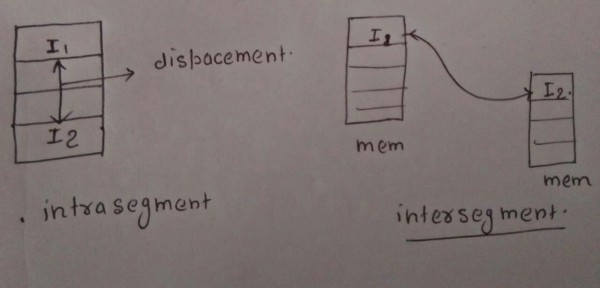 I1
I2
dispacement.
. intrasegment
I1
mem
I2.
mem
intersegment.